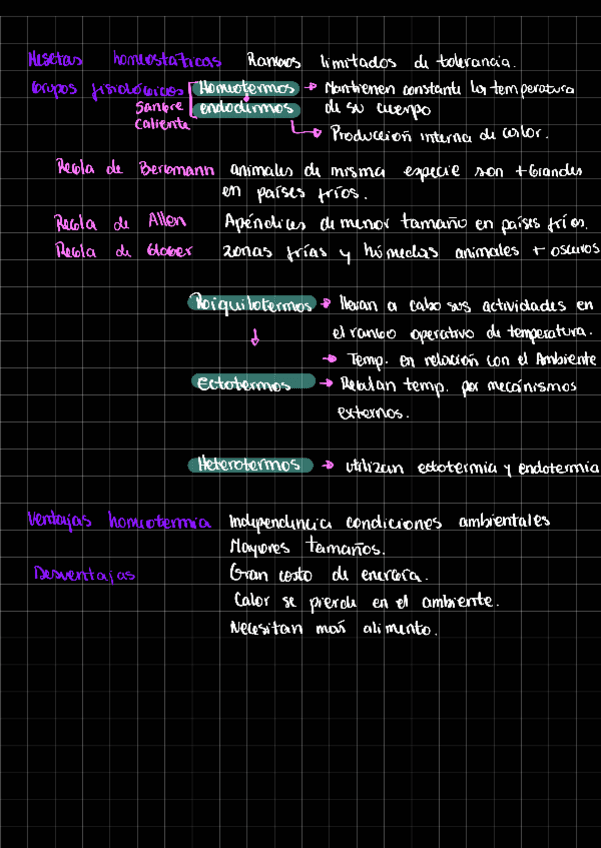 Mesetas homeostáticas Rangos limitados de tolerancia.
Grupos fisiológicos Homeotermos → Mantienen constante la temperatura
Sangre endodermos de su cuerpo
caliente → Producción interna de calor.
Regla de Bergmann animales de misma especie son + Grandes
en países fríos.
Regla de Allen Apéndices de menor tamaño en países fríos.
Regla de Gloger zonas frías y húmedas animales + oscuros
Poiquilotermos → llevan a cabo sus actividades en
el rango operativo de temperatura.
→ Temp. en relación con el Ambiente
Ectotermos → Regulan temp. por mecánismos
externos.
Heterotermos → utilizan ectotermia y endotermia
Ventajas homeotermia Independencia condiciones ambientales
Mayores tamaños.
Desventajas Gran costo de energía.
Calor se pierde en el ambiente.
Necesitan más alimento.